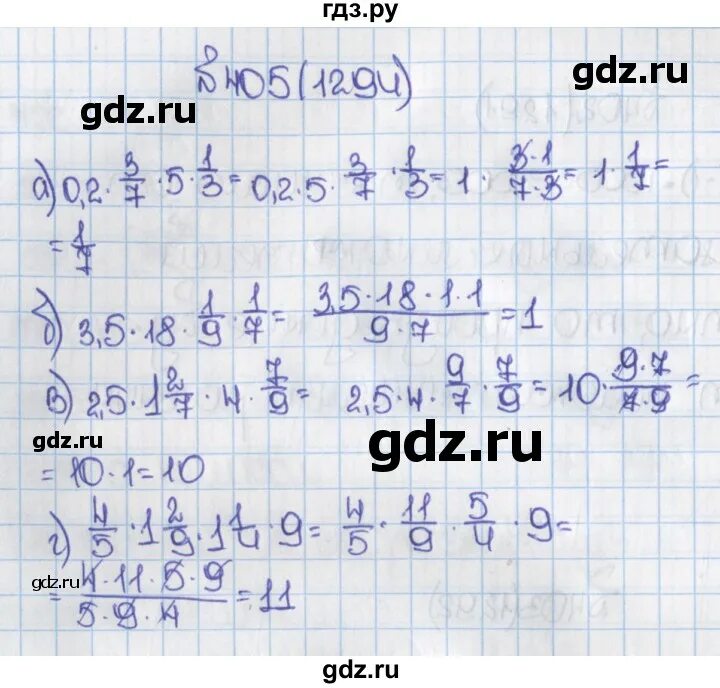 гдз.ру
№405(1294)
gdz.ru
gdz.ru
а) 0,2 · 3/7 · 5 · 1/3 = 0,2 · 5 · 3/7 · 1/3 = 1 · 3·1/7·3 = 1 · 1/7 =
= 1/7
б) 3,5 · 18 1/9 · 1/7 = 3,5·18·1·1/9·7 = 1
в) 2,5 · 1 2/7 · 4 · 7/9 = 2,5 · 4 · 9/7 · 7/9 = 10 · 9·7/7·9 =
gdz.ru
gdz.ru
= 10 · 1 = 10
г) 4/5 · 1 2/9 · 1 1/4 · 9 = 4/5 · 11/9 · 5/4 · 9 =
gdz.ru
gdz.ru
= 4·11·5·9/5·9·4 = 11
gdz.ru